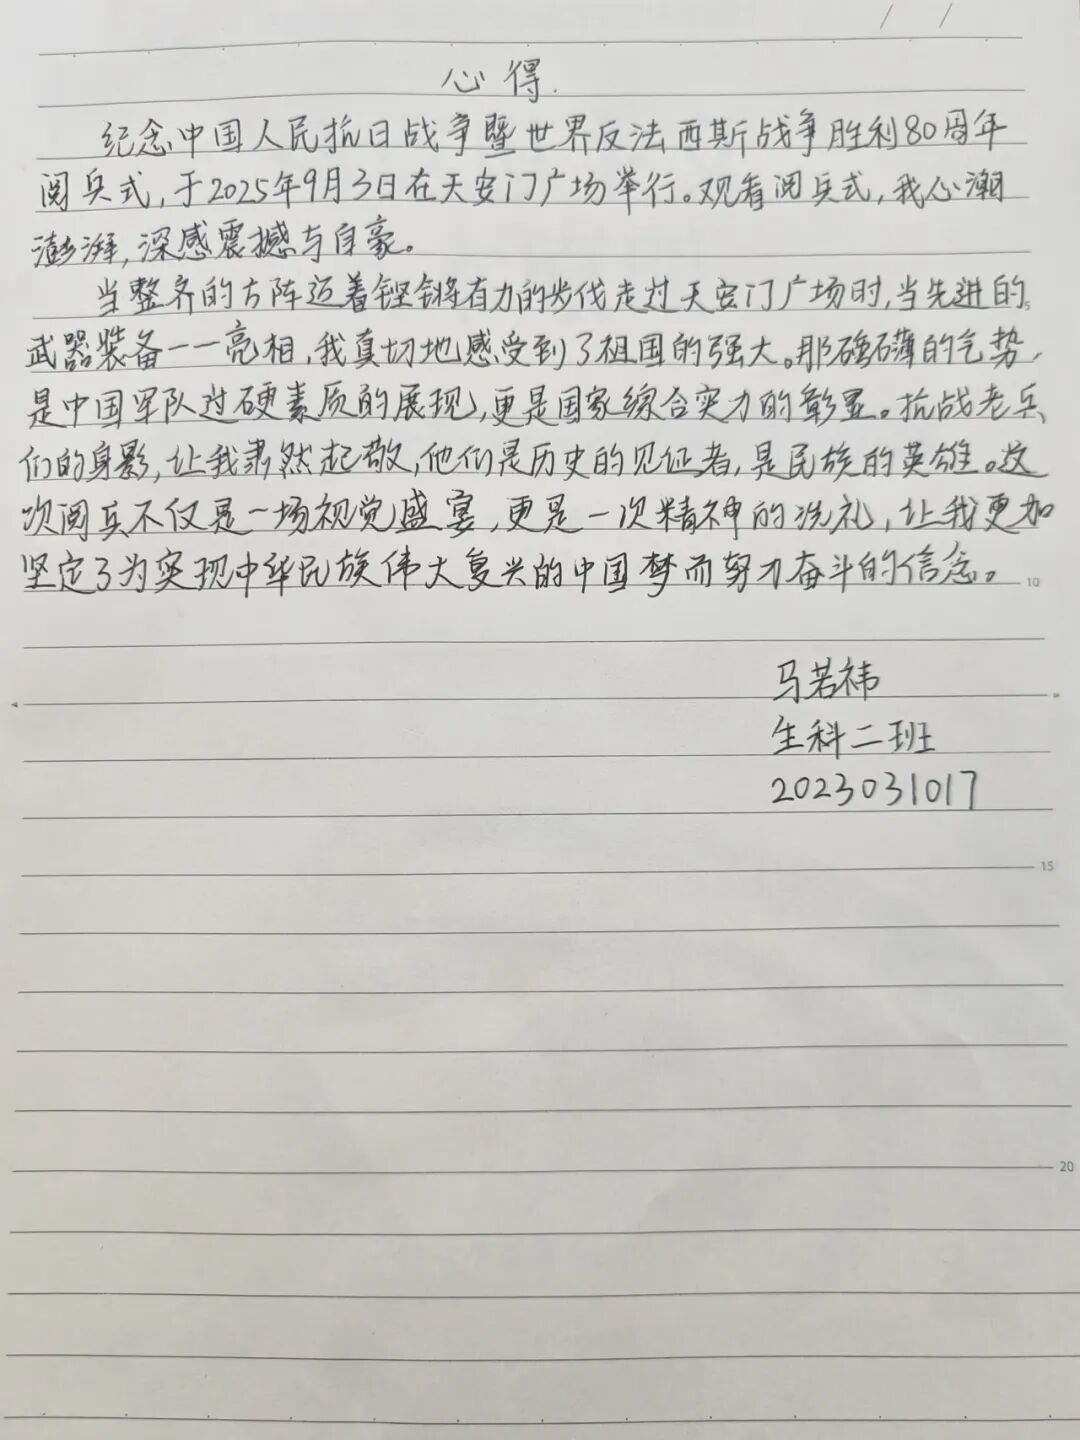 心得.
纪念中国人民抗日战争暨世界反法西斯战争胜利80周年
阅兵式,于2025年9月3日在天安门广场举行。观看阅兵式,我心潮
澎湃,深感震撼与自豪。
当整齐的方阵迈着铿锵有力的步伐走过天安门广场时,当先进的
武器装备一一亮相,我真切地感受到了祖国的强大。那磅礴的气势,
是中国军队过硬素质的展现,更是国家综合实力的彰显。抗战老兵
们的身影,让我肃然起敬,他们是历史的见证者,是民族的英雄。这
次阅兵不仅是一场视觉盛宴,更是一次精神的洗礼,让我更加
坚定了为实现中华民族伟大复兴的中国梦而努力奋斗的信念。
10
马若祎
生科二班
2023031017
15
20